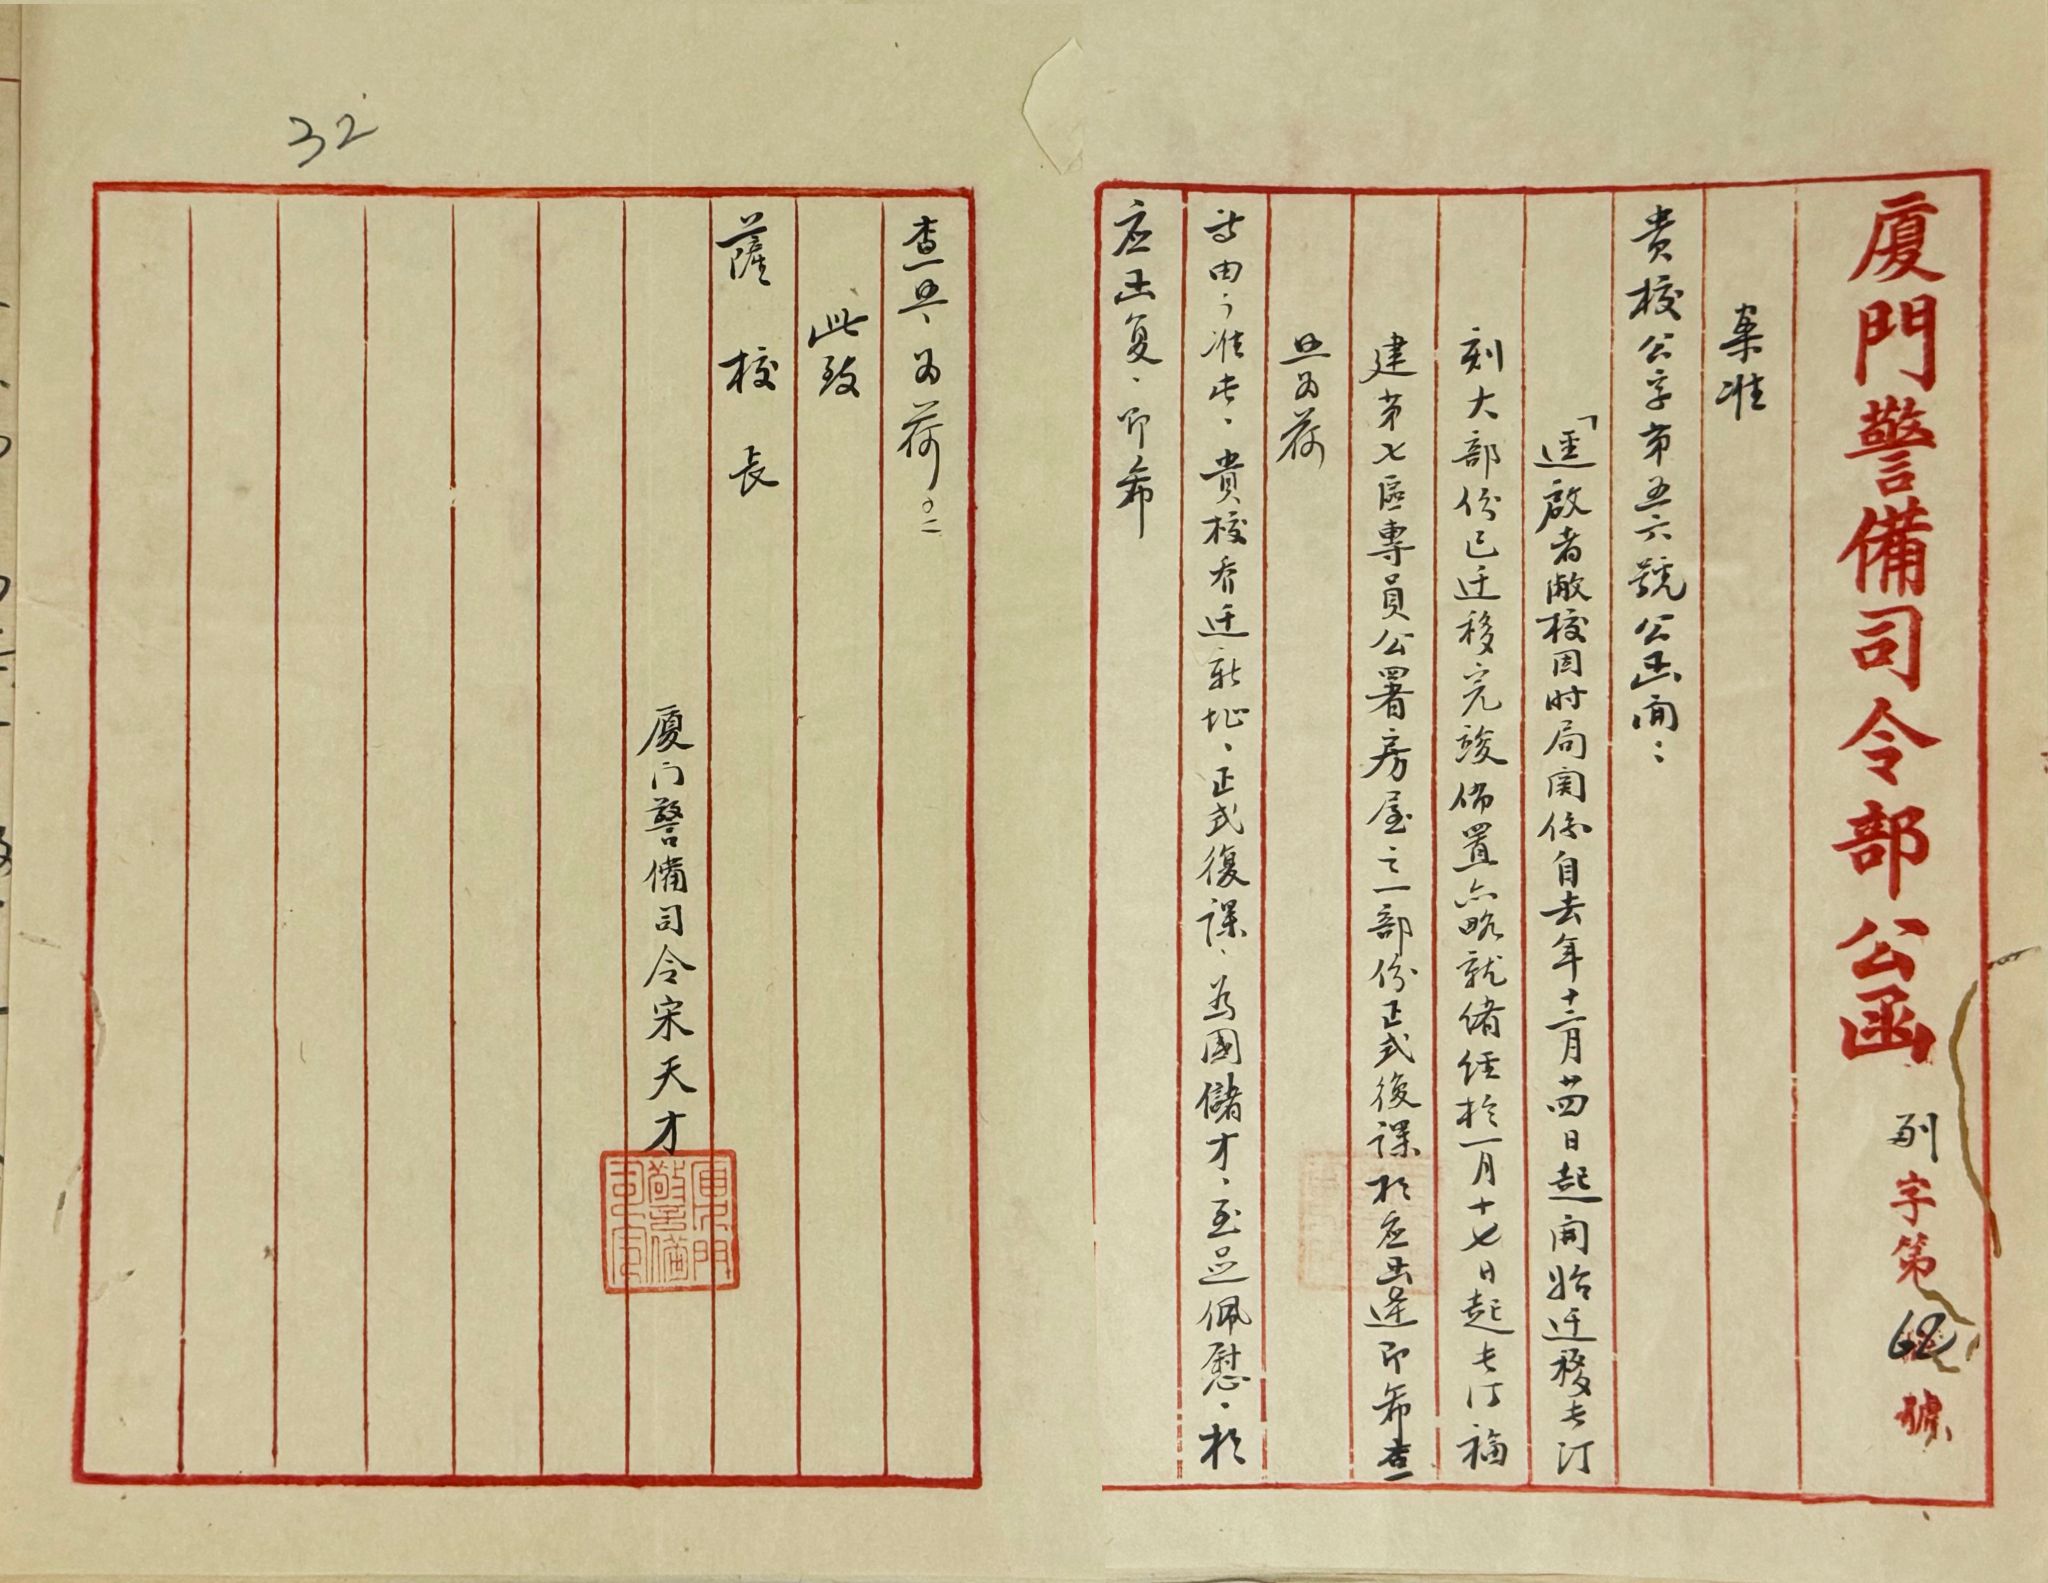 廈門警備司令部公函 副字第62號
案准
貴校公字第五六號公函開：
「逕啟者敝校因时局関係自去年十二月廿四日起開始迁移長汀
刻大部份已迁移完竣佈置亦略就緒経於一月十七日起長汀福
建第七區專員公署房屋之一部份正式復課相應函達即希查
照為荷
等由，准此，貴校喬迁新址，正式復課，為國儲才，至足佩慰，相
应函复，即希
查照，為荷。
此致
薩校長
廈门警備司令宋天才
廈門警備司令
32